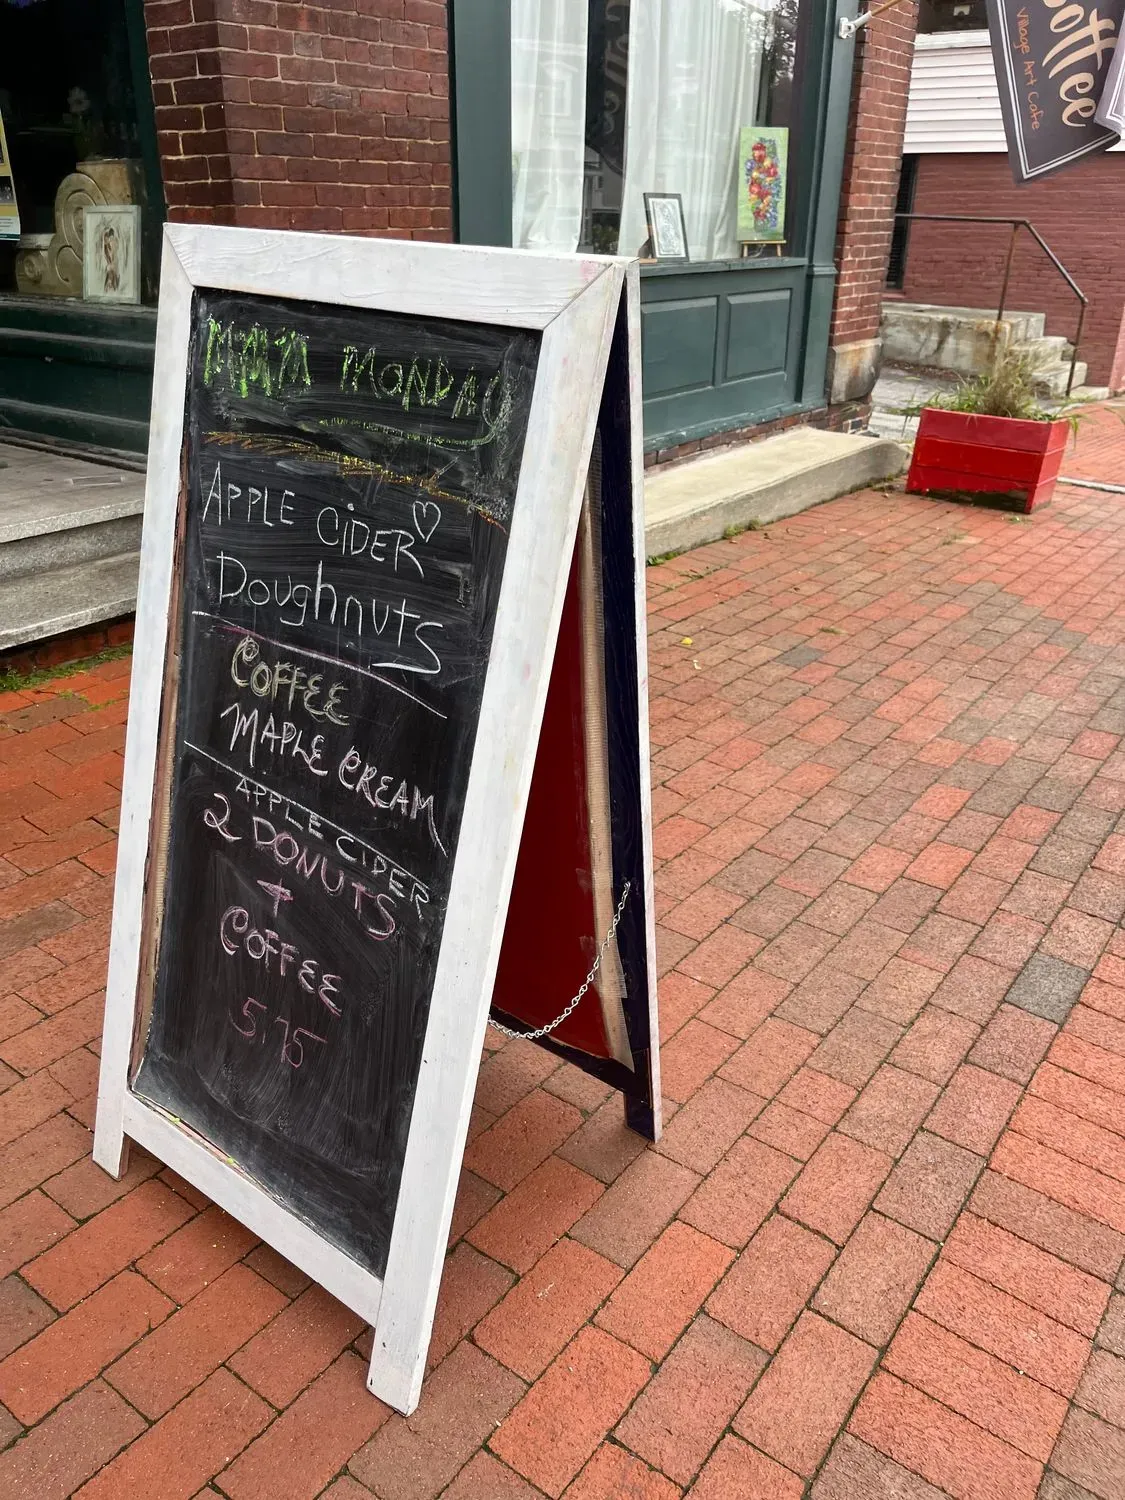 MMM MONDAY
APPLE CIDER
Doughnuts
COFFEE
MAPLE CREAM
APPLE CIDER
2 DONUTS
+
COFFEE
5.75
Coffee
Village Art Cafe